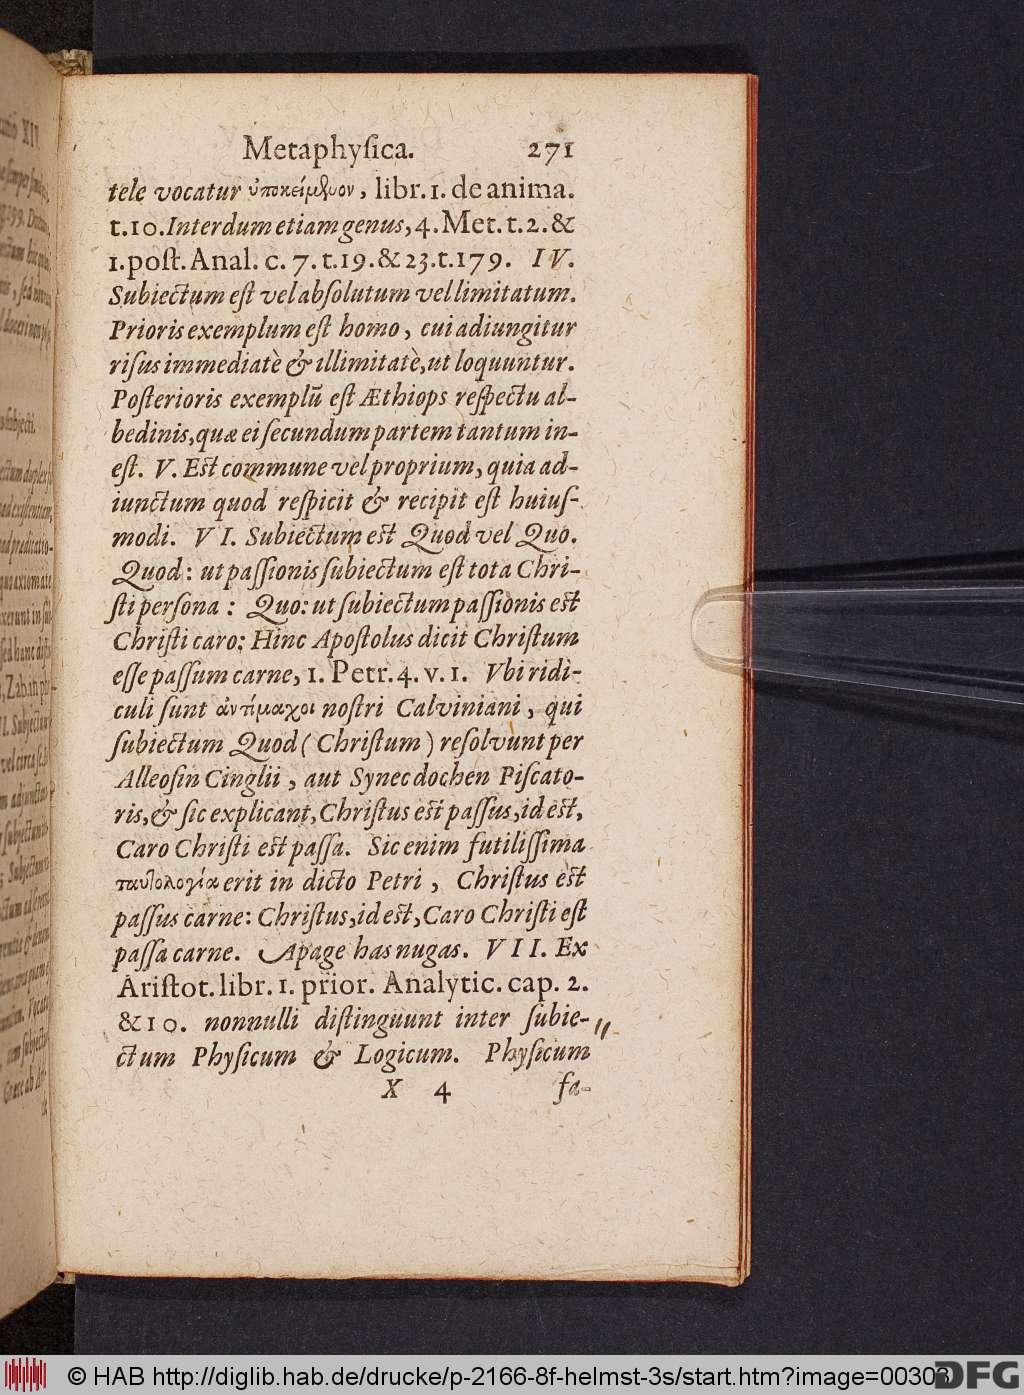 Metaphyſica. 271
tele vocatur ὑποκείμενον, libr. 1. de anima.
t. 10. Interdum etiam genus, 4. Met. t. 2. &
1. poſt. Anal. c. 7. t. 19. & 23. t. 179. IV.
Subiectum eſt vel abſolutum vel limitatum.
Prioris exemplum eſt homo, cui adiungitur
riſus immediatè & illimitatè, ut loquuntur.
Poſterioris exemplū eſt Æthiops reſpectu al-
bedinis, quæ ei ſecundum partem tantum in-
eſt. V. Eſt commune vel proprium, quia ad-
iunctum quod reſpicit & recipit eſt huiuſ-
modi. VI. Subiectum eſt Quod vel Quo.
Quod: ut paſſionis ſubiectum eſt tota Chri-
ſti perſona: Quo: ut ſubiectum paſſionis eſt
Chriſti caro: Hinc Apoſtolus dicit Chriſtum
eſſe paſſum carne, 1. Petr. 4. v. 1. Vbi ridi-
culi ſunt ἀντίμαχοι noſtri Calviniani, qui
ſubiectum Quod (Chriſtum) reſolvunt per
Alleoſin Cinglii, aut Synecdochen Piſcato-
ris, & ſic explicant, Chriſtus eſt paſſus, id eſt,
Caro Chriſti eſt paſſa. Sic enim futiliſſima
ταυτολογία erit in dicto Petri, Chriſtus eſt
paſſus carne: Chriſtus, id eſt, Caro Chriſti eſt
paſſa carne. Apage has nugas. VII. Ex
Ariſtot. libr. 1. prior. Analytic. cap. 2.
& 10. nonnulli diſtinguunt inter ſubie-
ctum Phyſicum & Logicum. Phyſicum
X 4 fa-
© HAB http://diglib.hab.de/drucke/p-2166-8f-helmst-3s/start.htm?image=00303
DFG